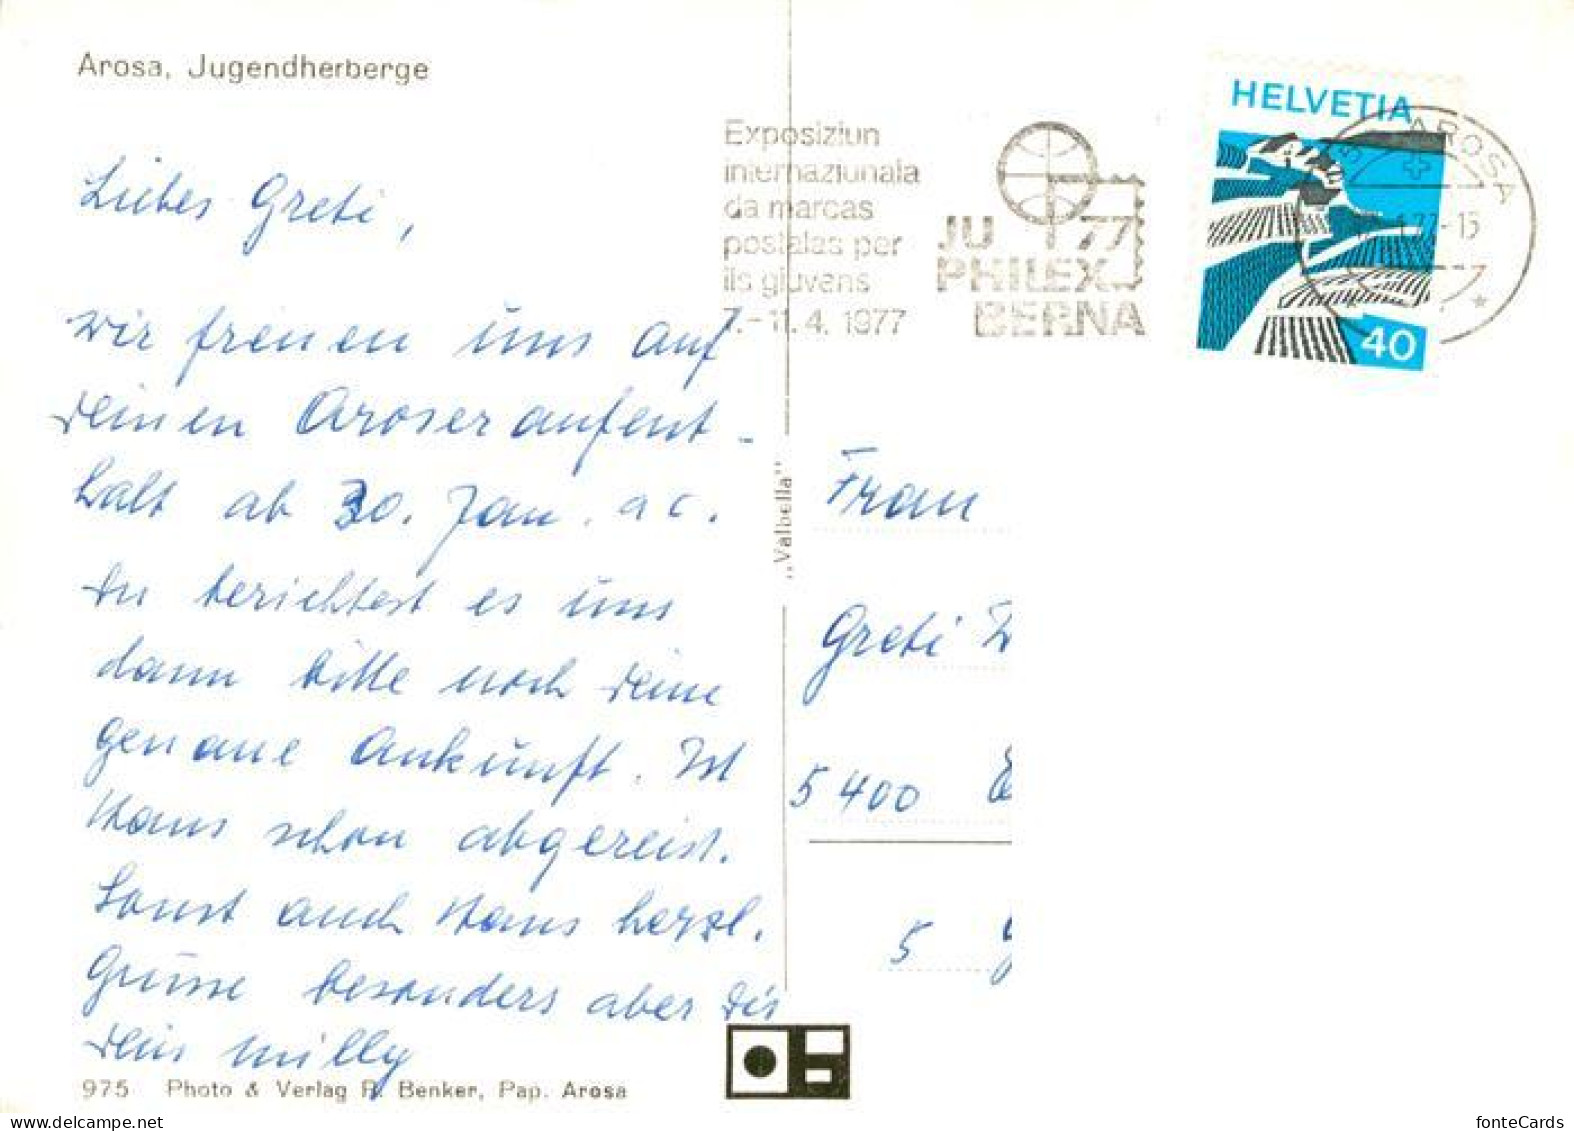 Arosa, Jugendherberge
Exposiziun
internaziunala
da marcas
postalas per
ils giuvens
7.-11.4. 1977
JU 77
PHILEX
BERNA
HELVETIA
40
AROSA
Liebes Greti,
wir freuen uns auf
deinen Aroseraufent-
halt ab 30. Jan. ac.
Du berichtest es uns
dann bitte noch deine
genaue Ankunft. Ist
Hans schon abgereist.
Sonst auch Hans herzl.
Grüsse besonders aber Dir
dein Milly
„Valbella"
Frau
Greti
5400
5
975 Photo & Verlag R. Benker, Pap. Arosa
fonteCards